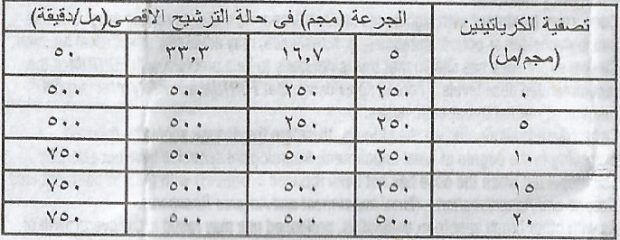 تصفية الكرياتينين الجرعة (مجم) فى حالة الترشيح الاقصى(مل/دقيقة)
(مجم/مل) ١٦,٧ ٣٣,٣ ٥٠
٠ ٢٥٠ ٢٥٠ ٥٠٠ ٥٠٠
٥ ٢٥٠ ٢٥٠ ٥٠٠ ٥٠٠
١٠ ٢٥٠ ٥٠٠ ٥٠٠ ٧٥٠
١٥ ٢٥٠ ٥٠٠ ٥٠٠ ٧٥٠
٢٠ ٥٠٠ ٥٠٠ ٥٠٠ ٧٥٠